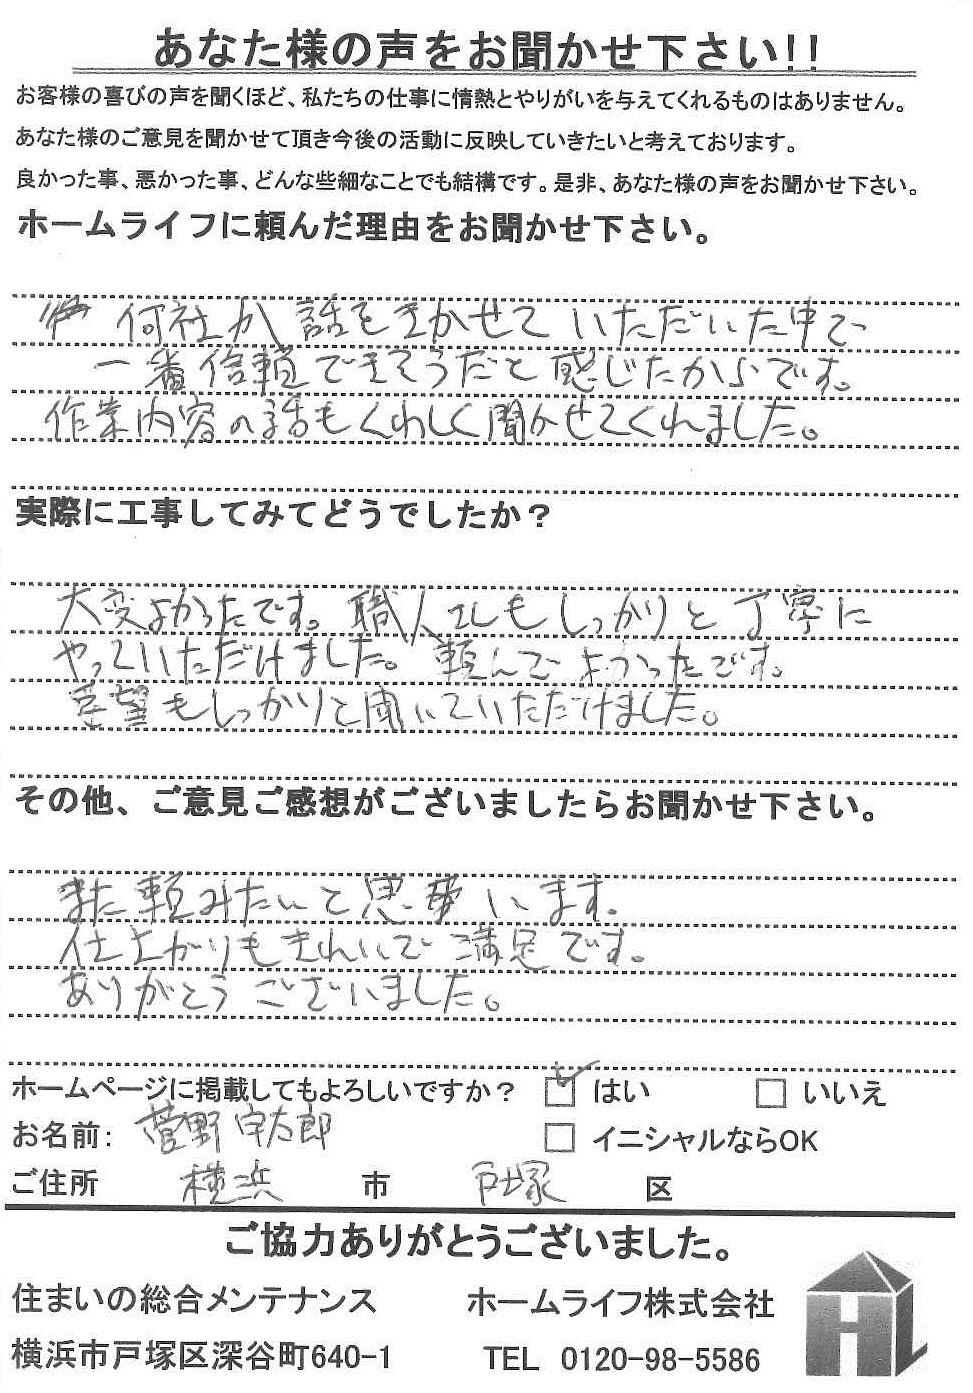 あなた様の声をお聞かせ下さい!!
お客様の喜びの声を聞くほど、私たちの仕事に情熱とやりがいを与えてくれるものはありません。
あなた様のご意見を聞かせて頂き今後の活動に反映していきたいと考えております。
良かった事、悪かった事、どんな些細なことでも結構です。是非、あなた様の声をお聞かせ下さい。
ホームライフに頼んだ理由をお聞かせ下さい。
何社か 話をきかせて いただいた中で
一番信頼できそうだと感じたからです。
作業内容の話もくわしく聞かせてくれました。
実際に工事してみてどうでしたか？
大変よかったです。職人さんもしっかりと丁寧に
やっていただけました。頼んでよかったです。
要望もしっかりと聞いていただけました。
その他、ご意見ご感想がございましたらお聞かせ下さい。
また頼みたいと思います。
仕上がりもきれいで満足です。
ありがとうございました。
ホームページに掲載してもよろしいですか？ はい いいえ
お名前: 菅野 宇太郎 イニシャルならOK
ご住所 横浜 市 戸塚 区
ご協力ありがとうございました。
住まいの総合メンテナンス ホームライフ株式会社
横浜市戸塚区深谷町640-1 TEL 0120-98-5586
HL